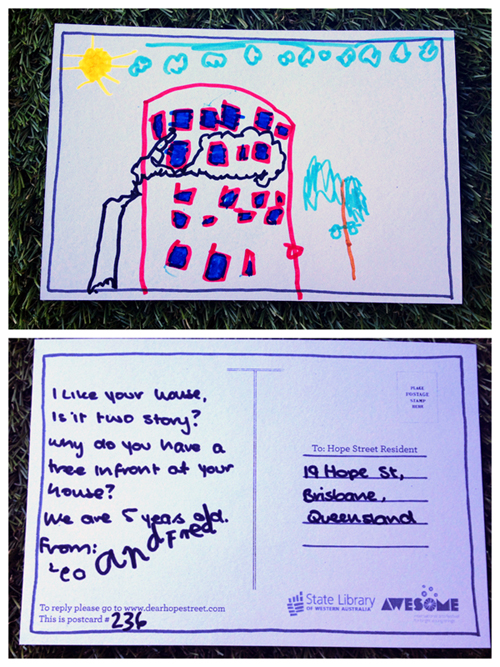 I Like your house,
Is it two story?
why do you have a
tree infront of your
house?
We are 5 years old.
From:
Leo and Fred
To reply please go to www.dearhopestreet.com
This is postcard # 236
PLACE
POSTAGE
STAMP
HERE
To: Hope Street Resident
19 Hope St,
Brisbane,
Queensland
State Library
OF WESTERN AUSTRALIA
AWESOME